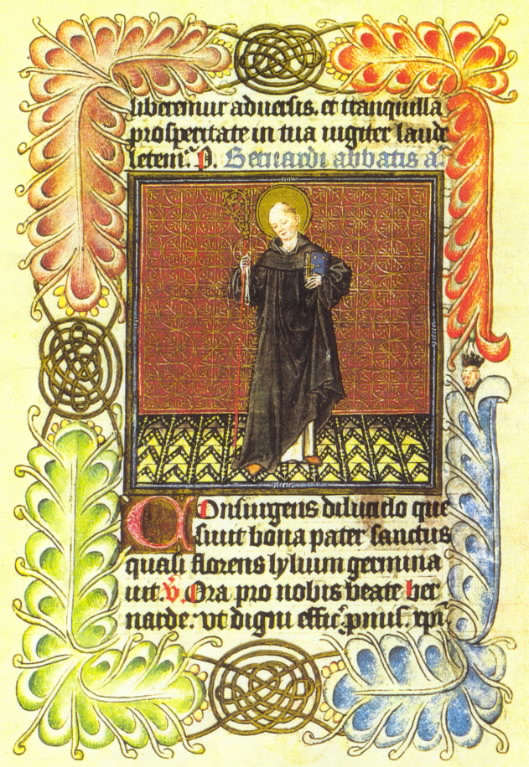 liberemur aduersis. et tranquilla
prosperitate in tua iugiter laude
letem᷒. P. Bernardi abbatis a᷒.
Consurgens diluculo que
siuit bona pater sanctus
quasi florens lylium germina
uit. V. Ora pro nobis beate ber
narde. vt digni effic᷒. pmis. xpi